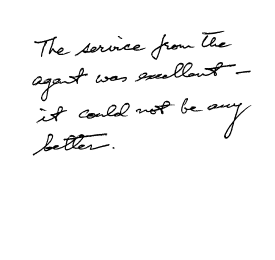 The service from the
agent was excellent –
it could not be any
better.